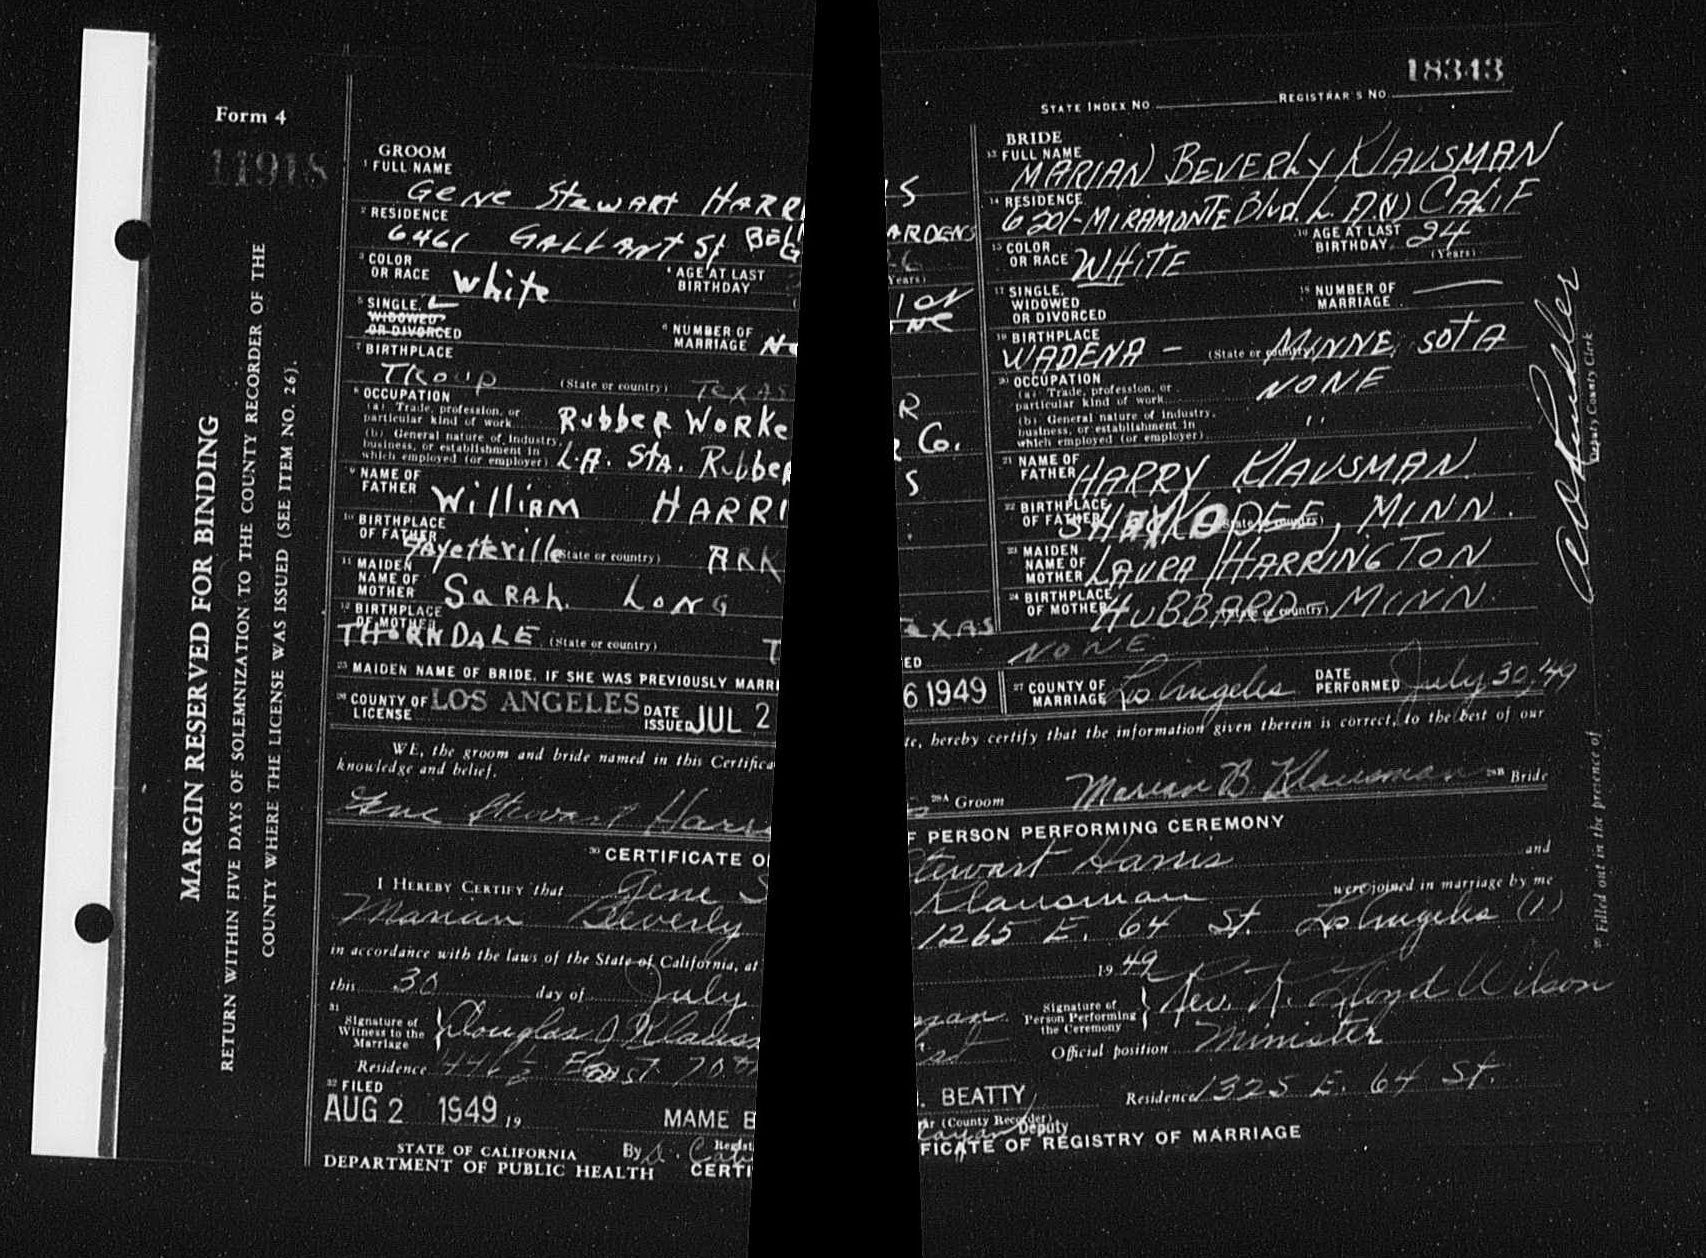 18343
STATE INDEX NO REGISTRAR'S NO
Form 4
11918
MARGIN RESERVED FOR BINDING
RETURN WITHIN FIVE DAYS OF SOLEMNIZATION TO THE COUNTY RECORDER OF THE
COUNTY WHERE THE LICENSE WAS ISSUED (SEE ITEM NO. 26).
GROOM
1 FULL NAME
GENE STEWART HARR
2 RESIDENCE
6461 GALLANT St BELL G
3 COLOR OR RACE White 4 AGE AT LAST BIRTHDAY
5 SINGLE, WIDOWED OR DIVORCED 6 NUMBER OF MARRIAGE
7 BIRTHPLACE
TROUP (State or country) TEXAS
8 OCCUPATION
(a) Trade, profession, or
particular kind of work RUBBER WORKE
(b) General nature of industry,
business, or establishment in
which employed (or employer) L.A. STA. Rubber
9 NAME OF FATHER WILLIAM HARRI
10 BIRTHPLACE OF FATHER Fayetteville (State or country) ARK
11 MAIDEN NAME OF MOTHER SARAH LONG
12 BIRTHPLACE OF MOTHER
THORNDALE (State or country) T
25 MAIDEN NAME OF BRIDE, IF SHE WAS PREVIOUSLY MARRI
26 COUNTY OF LICENSE LOS ANGELES DATE ISSUED JUL 2
WE, the groom and bride named in this Certifica
knowledge and belief.
Gene Stewart Harri
30 CERTIFICATE O
I HEREBY CERTIFY that Gene S
Marian Beverly
in accordance with the laws of the State of California, at
this 30 day of July
31 Signature of Witness to the Marriage Douglas J Klauss
Residence 446 1/2 East 70th
32 FILED
AUG 2 1949, 19 MAME B
Regist
STATE OF CALIFORNIA By
DEPARTMENT OF PUBLIC HEALTH CERTI
S
ARDENS
26
Years)
R
R Co.
S
EXAS
ED
6 1949
BRIDE
13 FULL NAME
MARIAN BEVERLY KLAUSMAN
14 RESIDENCE
6201- MIRAMONTE Blvd. L.A.(1) CALIF
15 COLOR OR RACE WHITE 16 AGE AT LAST BIRTHDAY 24 (Years)
17 SINGLE, WIDOWED OR DIVORCED 18 NUMBER OF MARRIAGE
19 BIRTHPLACE
WADENA - (State or country) MINNESOTA
20 OCCUPATION
(a) Trade, profession, or
particular kind of work NONE
(b) General nature of industry,
business, or establishment in
which employed (or employer) "
21 NAME OF FATHER HARRY KLAUSMAN
22 BIRTHPLACE OF FATHER SHAKOPEE, MINN. (State or country)
23 MAIDEN NAME OF MOTHER LAURA HARRINGTON
24 BIRTHPLACE OF MOTHER HUBBARD - MINN. (State or country)
NONE
27 COUNTY OF MARRIAGE Los Angeles DATE PERFORMED July 30, 49
te, hereby certify that the information given therein is correct, to the best of our
28A Groom Marian B. Klausman 28B Bride
F PERSON PERFORMING CEREMONY
Stewart Harris and
Klausman were joined in marriage by me
1265 E. 64 St. Los Angeles (1)
19 49
man
Signature of Person Performing the Ceremony Rev. R. Lloyd Wilson
Official position Minister
Residence 1325 E. 64 St.
. BEATTY
ar (County Recorder)
Deputy
FICATE OF REGISTRY OF MARRIAGE
29 Filled out in the presence of
Deputy County Clerk